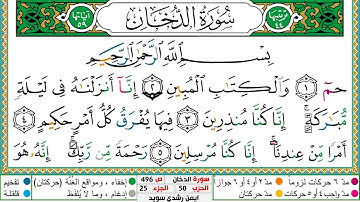 سُورَةُ الدُّخَانِ
مكية
آياتها
٥٩
بِسْمِ اللَّهِ الرَّحْمَٰنِ الرَّحِيمِ
حمٓ ۝١ وَالْكِتَابِ الْمُبِينِ ۝٢ إِنَّا أَنزَلْنَاهُ فِي لَيْلَةٍ
مُّبَارَكَةٍ إِنَّا كُنَّا مُنذِرِينَ ۝٣ فِيهَا يُفْرَقُ كُلُّ أَمْرٍ حَكِيمٍ ۝٤
أَمْرًا مِّنْ عِندِنَا إِنَّا كُنَّا مُرْسِلِينَ ۝٥ رَحْمَةً مِّن رَّبِّكَ إِنَّهُ هُوَ
مدّ ٦ حركات لزوماً مدّ ٢ أو ٤ أو ٦ جوازاً
مدّ واجب ٤ أو ٥ حركات مدّ حركتان
سورة الدخان ص 496
الحزب 50 الجزء 25
أيمن رشدي سويد
إخفاء، ومواقع الغنّة (حركتان) تفخيم
إدغام، وما لا يُلفظ قلقلة